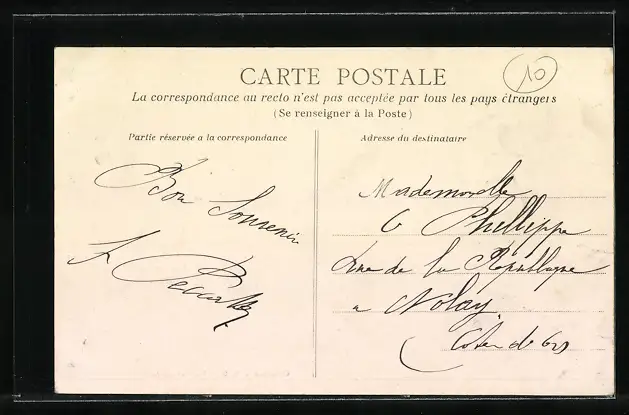 10
CARTE POSTALE
La correspondance au recto n'est pas acceptée par tous les pays étrangers
(Se renseigner à la Poste)
Partie réservée a la correspondance
Adresse du destinataire
Bon Souvenir
Mademoiselle
Phillippe
Rue de la République
a Nolay
Cote d'or